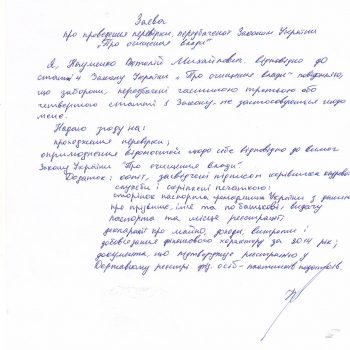 Заява
про проведення перевірки, передбаченої Законом України
„Про очищення влади"
Я, Науменко Михайлович, відповідно до
статті 4 Закону України „Про очищення влади" повідомляю,
що заборони, передбачені частиною третьою або
четвертою статті 1 Закону, не застосовуються щодо
мене.
Надаю згоду на:
проходження перевірки;
оприлюднення відомостей щодо себе відповідно до вимог
Закону України "Про очищення влади"
Додаток: копії, засвідчені підписом керівника кадрової
служби і скріплені печаткою:
сторінок паспорта громадянина України з даними
про прізвище, ім'я та по батькові, видачу
паспорта та місце реєстрації;
декларації про майно, доходи, витрати і
зобов'язання фінансового характеру за 2014 рік;
документа, що підтверджує реєстрацію у
Державному реєстрі фіз. осіб - платників податків.